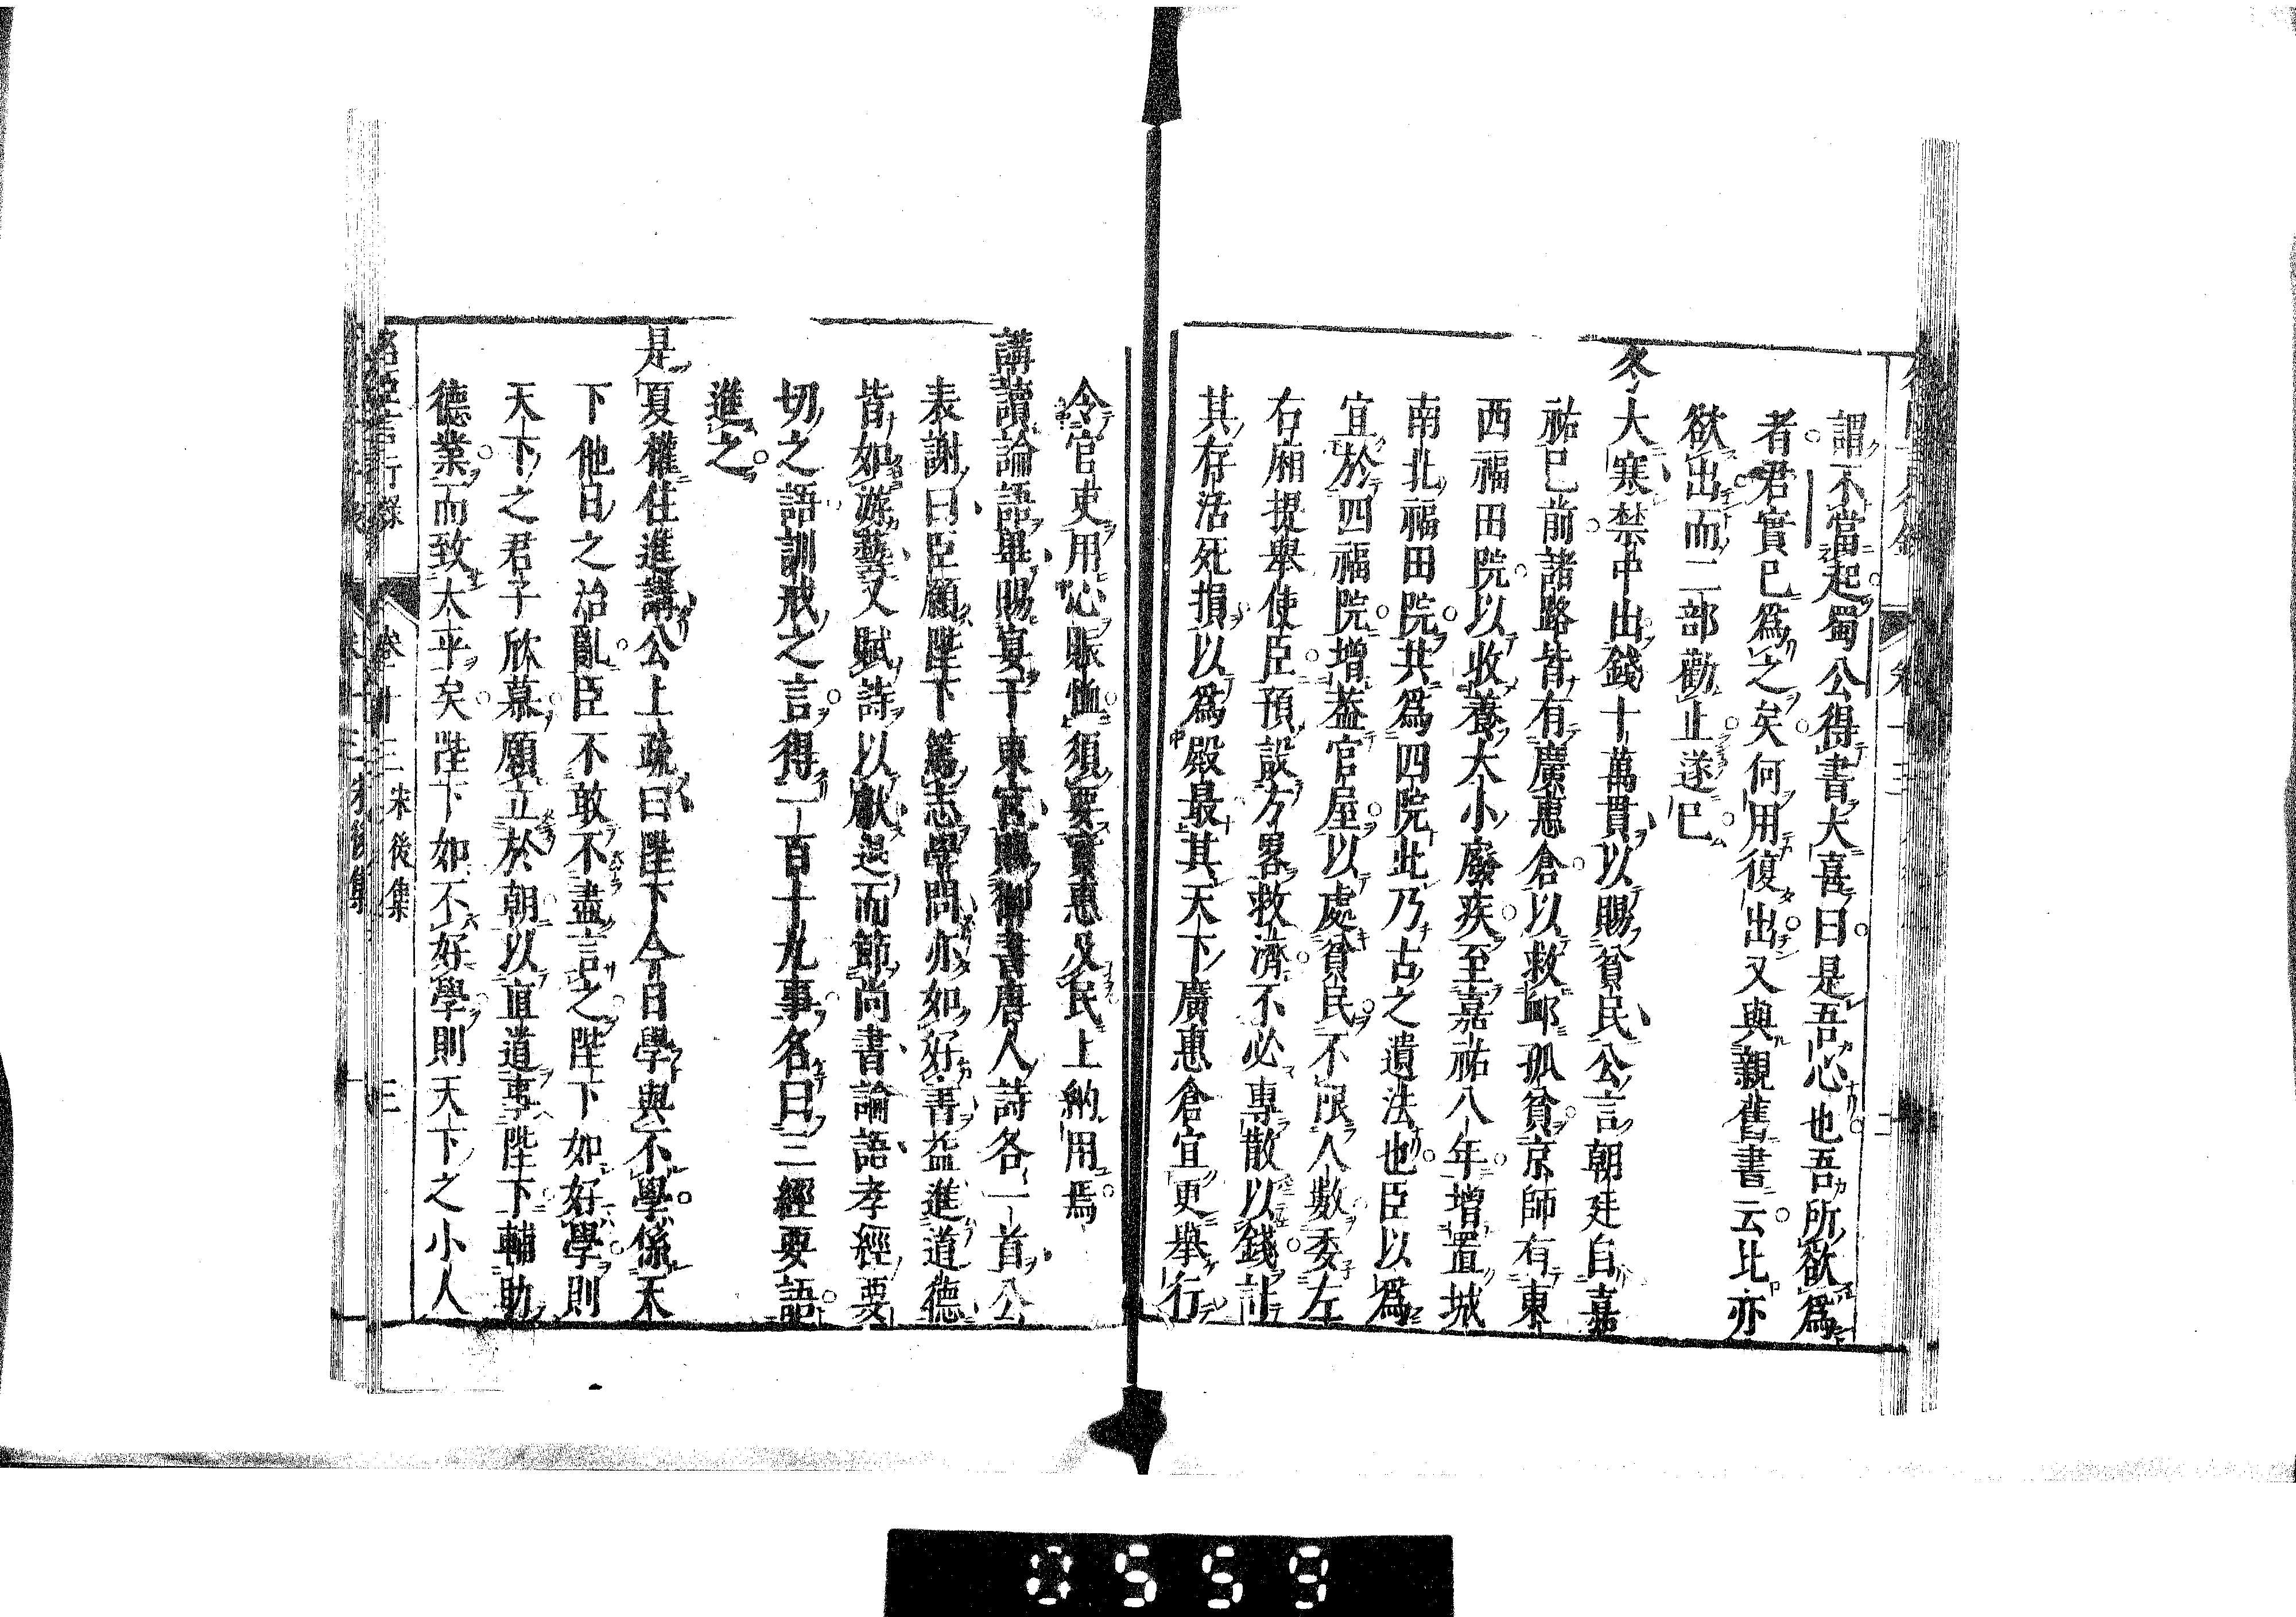 謂不當起蜀公得書大喜曰是吾心也吾所欲爲
者君實已爲之矣何用復出又與親舊書云比亦
欲出而二部勸止遂已
冬大寒禁中出錢十萬貫以賜貧民公言朝廷自嘉
祐已前諸路皆有廣惠倉以救䘏孤貧京師有東
西福田院以收養大小廢疾至嘉祐八年增置城
南北福田院共爲四院此乃古之遺法也臣以爲
宜於四福院增蓋官屋以處貧民不限人數委左
右廂提舉使臣預設方畧救濟不必專散以錢計
其存活死損以爲殿最其天下廣惠倉宜更舉行
令官吏用心賑恤須要實惠及民上納用焉
講讀論語畢賜宴于東宮賜御書唐人詩各一首公
表謝曰臣願陛下篤志學問亦如好書益進道德
皆如游藝又賦詩以獻退而節尚書論語孝經要
切之語訓戒之言得一百十九事名曰三經要語
進之
是夏權住進講公上疏曰陛下今日學與不學係天
下他日之治亂臣不敢不盡言之陛下如好學則
天下之君子欣慕願立於朝以直道事陛下輔助
德業而致太平矣陛下如不好學則天下之小人
名臣言行錄 卷十三 宋後集 三